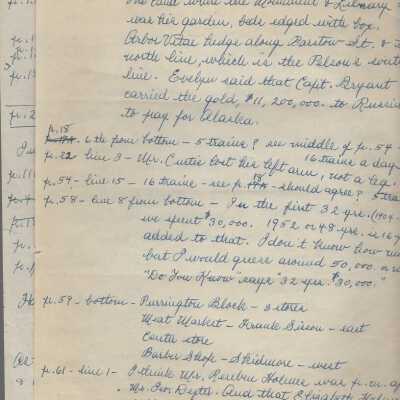 the land where the Monument & Library
was her garden, beds edged with box.
Arbor Vitae hedge along Barstow St. &
north line, which is the Nelson's south
line. Evelyn said that Capt. Bryant
carried the gold, $11,200,000. to Russia
to pay for Alaska.
p.18
6 th from bottom - 5 trains? see middle of p.54 -
16 trains a day
p.22 line 3 - Mrs. Curtis lost her left arm, not a leg.
p.54 - line 15 - 16 trains - see p. 18 - should agree? 5 trai
p.58 - line 8 from bottom - In the first 32 yrs. (1904-
we spent $30,000. 1952 or 48 yrs. is 16 y
added to that. I don't know how mu
but I would guess around 50,000. or
"Do You Know" says "32 yrs. $30,000."
p.59 - bottom - Purrington Block - 3 stores
Meat Market - Frank Sisson - east
Center store
Barber Shop - Skidmore - west
p.61 - line 1 - I think Mrs. Reuben Holmes was
Mr. Geo. Dexter. And that Elizabeth Holmes